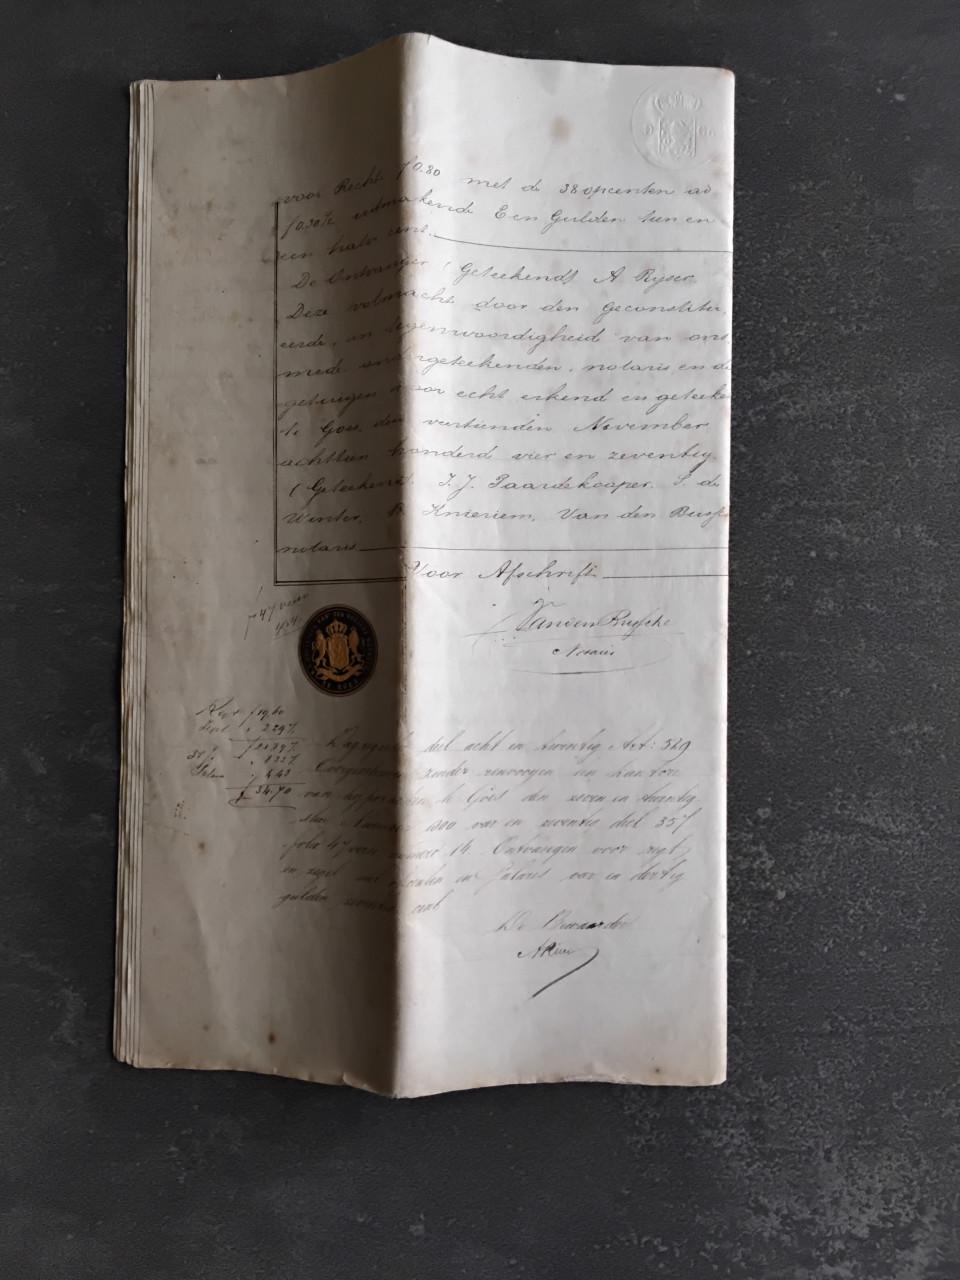 voor Recht f 0.80 met de 38 opcenten ad
f 0.30½ uitmakende Een Gulden tien en
een halv cent.
De Ontvanger (Geteekend) A Ryser
Deze volmacht door den Geconstitu,
eerde, in tegenwoordigheid van ons
mede ondergeteekenden, notaris en de
getuigen voor echt erkend en geteeke
te Goes, den veertienden November
achttien honderd vier en zeventig
(Geteekend) I. J. Paardekooper. S. de
Winter, Knieriem, Van den Bussche
notaris
Voor Afschrift
Van den Bussche
Notaris
f 19,60
2.29½
38
f 34.70
deel acht en twintig Art: 529
Overgeschreven zonder renvooijen ten kantore
van hypotheken te Goes den zeven en twintig
vier en zeventig deel 357
folio 47 nummer 14. Ontvangen voor regt
en zegel met opcenten en Salaris vier en dertig
gulden zeventig cent
De Bewaarder